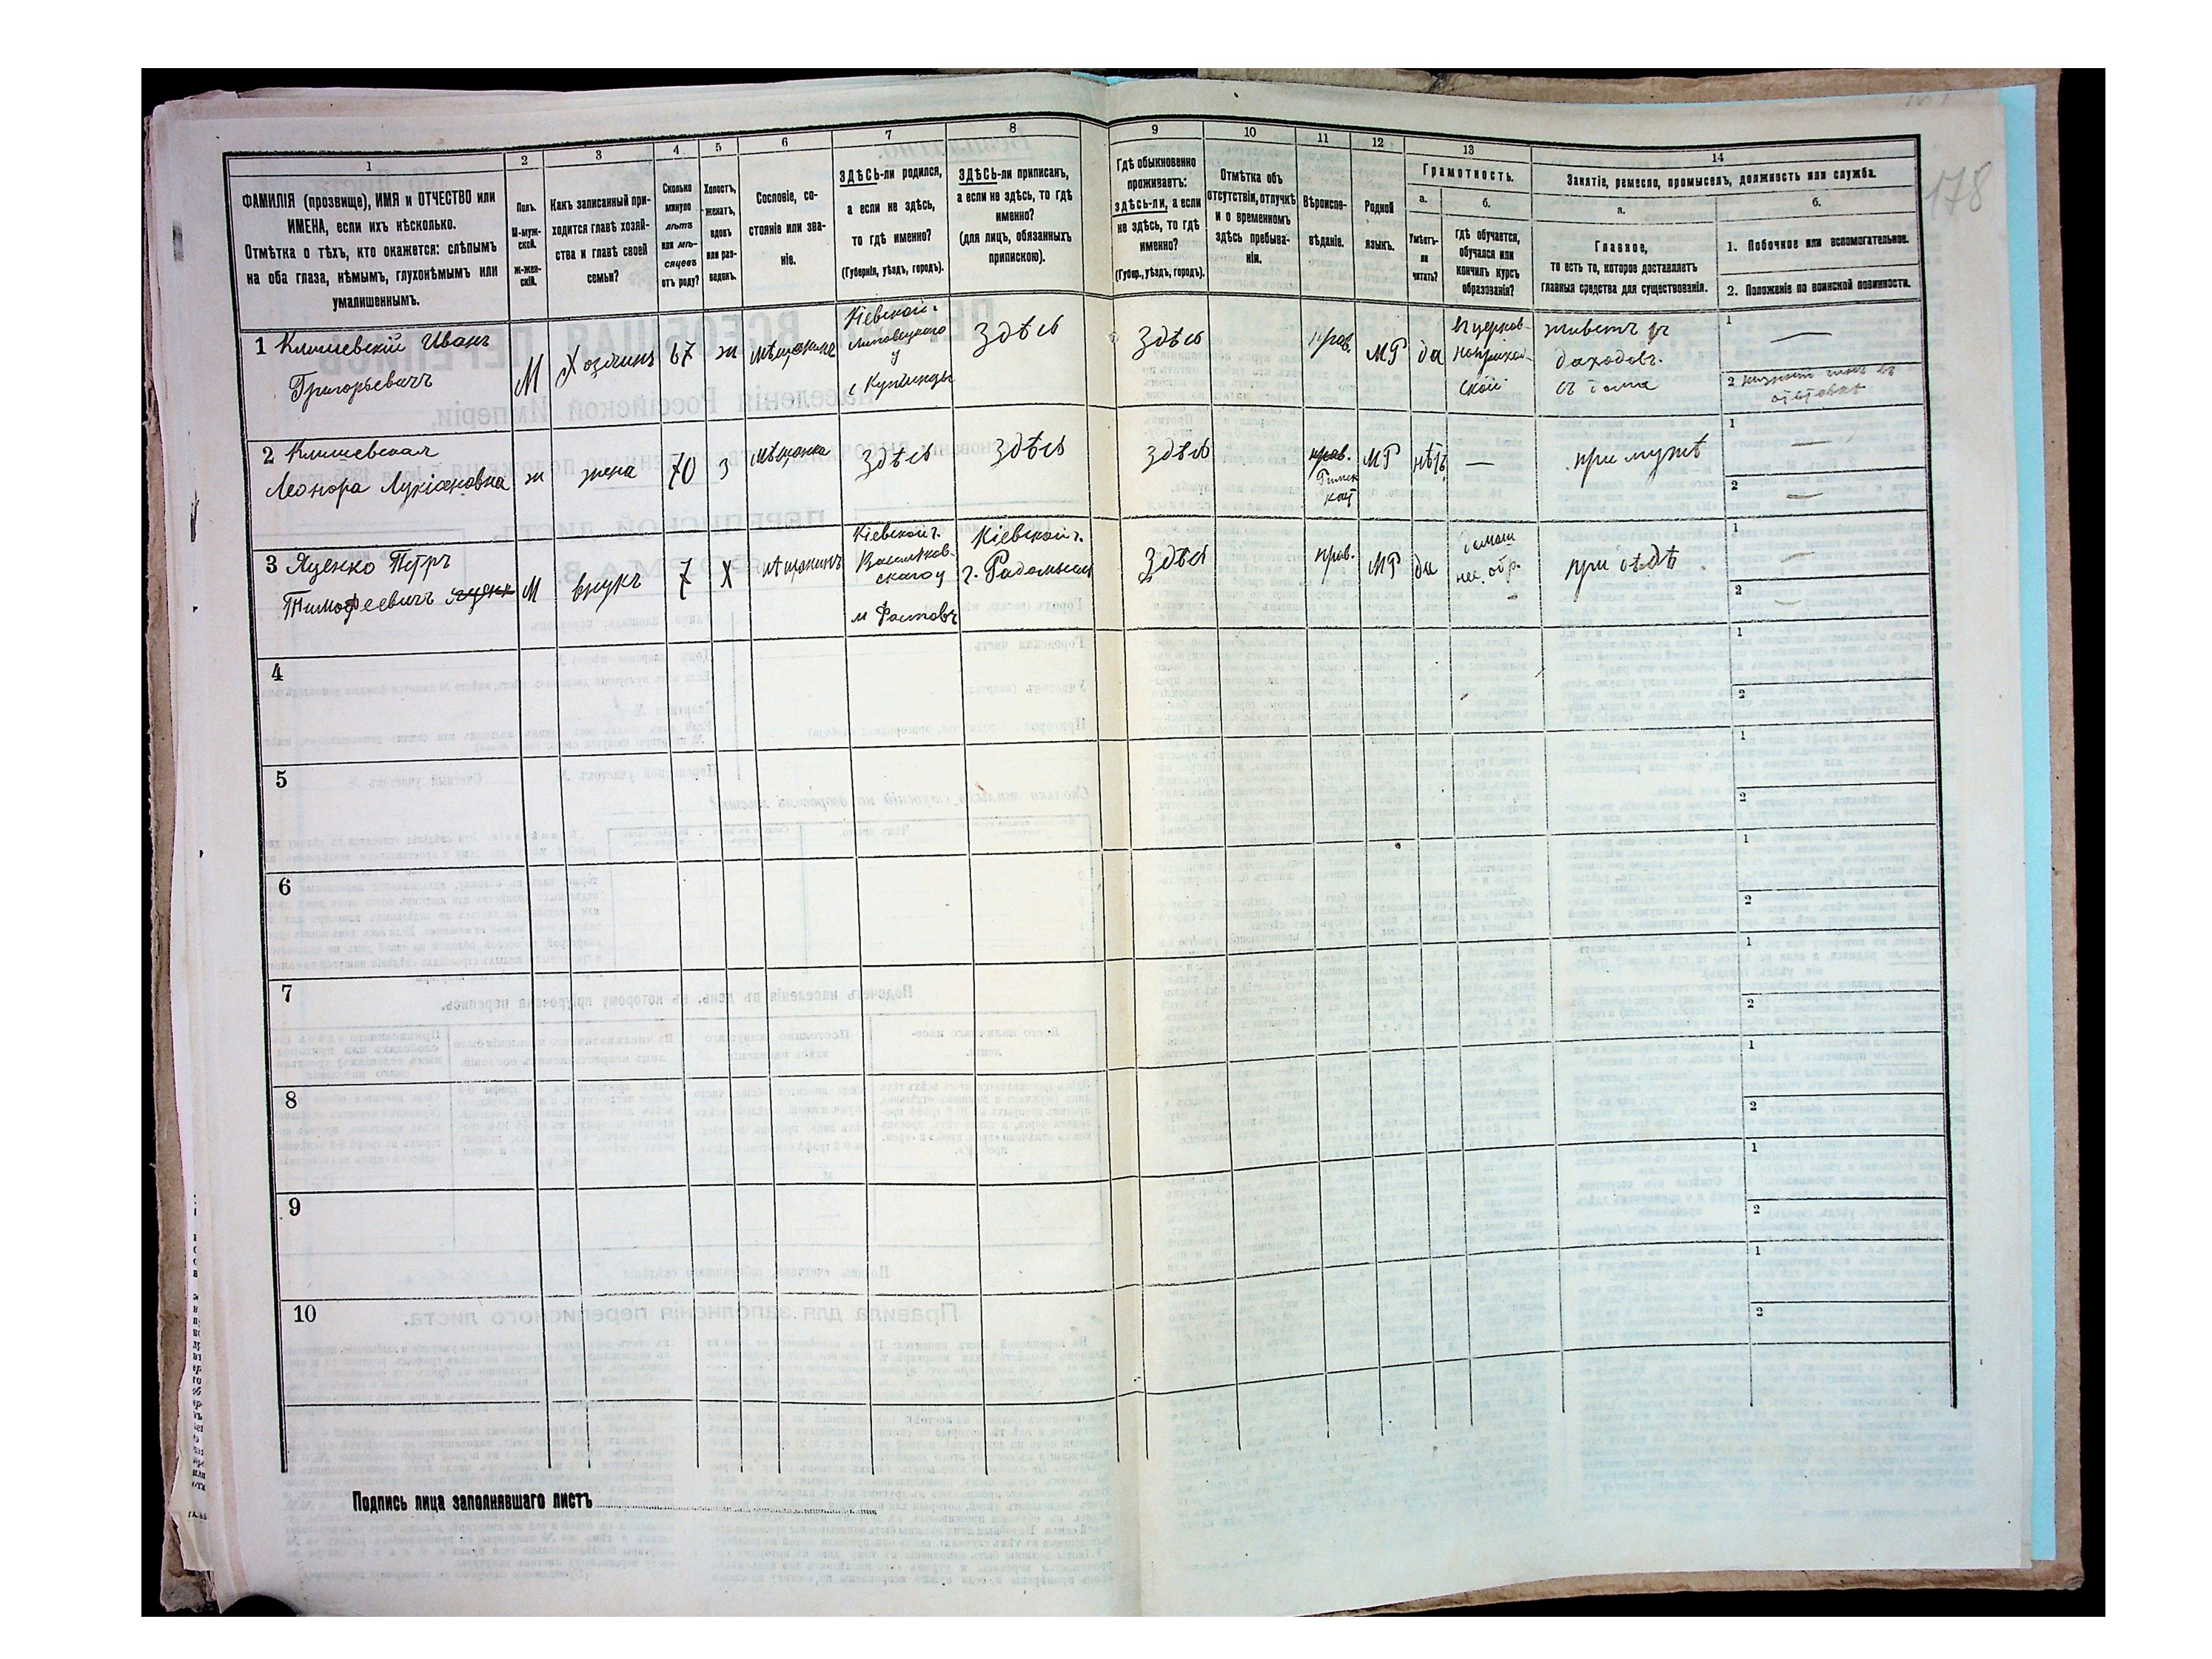 178
1
ФАМИЛІЯ (прозвище), ИМЯ и ОТЧЕСТВО или
ИМЕНА, если ихъ нѣсколько.
Отмѣтка о тѣхъ, кто окажется: слѣпымъ
на оба глаза, нѣмымъ, глухонѣмымъ или
умалишеннымъ.
2
Полъ.
М-муж-
ской.
Ж-жен-
скій.
3
Какъ записанный при-
ходится главѣ хозяй-
ства и главѣ своей
семьи?
4
Сколько
минуло
лѣтъ
или мѣ-
сяцевъ
отъ роду?
5
Холостъ,
женатъ,
вдовъ
или раз-
веденъ.
6
Сословіе, со-
стояніе или зва-
ніе.
7
ЗДѢСЬ-ли родился,
а если не здѣсь,
то гдѣ именно?
(Губернія, уѣздъ, городъ).
8
ЗДѢСЬ-ли приписанъ,
а если не здѣсь, то гдѣ
именно?
(для лицъ, обязанныхъ
припискою).
9
Гдѣ обыкновенно
проживаетъ:
здѣсь-ли, а если
не здѣсь, то гдѣ
именно?
(Губер., уѣздъ, городъ).
10
Отмѣтка объ
отсутствіи, отлучкѣ
и о временномъ
здѣсь пребыва-
ніи.
11
Вѣроиспо-
вѣданіе.
12
Родной
языкъ.
13
Грамотность.
а.
Умѣетъ-
ли
читать?
б.
Гдѣ обучается,
обучался или
кончилъ курсъ
образованія?
14
Занятіе, ремесло, промыселъ, должность или служба.
а.
Главное,
то есть то, которое доставляетъ
главныя средства для существованія.
б.
1. Побочное или вспомогательное.
2. Положеніе по воинской повинности.
1 Климевскій Иванъ
Григорьевичъ
М
Хозяинъ
67
ж
мѣщанинъ
Кіевской г.
Липовецкаго
у
Здѣсь
Здѣсь
прав.
МР
да
въ церков-
ноприход-
ской
живетъ
доходовъ.
съ дома
1 —
2 нижній чинъ въ
отставкѣ
2 Климевская
Леонора Лукіановна
ж
жена
70
З
мѣщанка
Здѣсь
Здѣсь
Здѣсь
прав.
Римск
кат
МР
нѣтъ
—
при мужѣ
1 —
2 —
3 Яценко Петръ
Тимофеевичъ
М
внукъ
7
Х
мѣщанинъ
Кіевской г.
Васильков-
скаго у
м Фастовъ
Кіевской г.
г. Радомысль
Здѣсь
прав.
МР
да
домаш
при дѣдѣ
1 —
2 —
4
1
2
5
1
2
6
1
2
7
1
2
8
1
2
9
1
2
10
1
2
Подпись лица заполнявшаго листъ